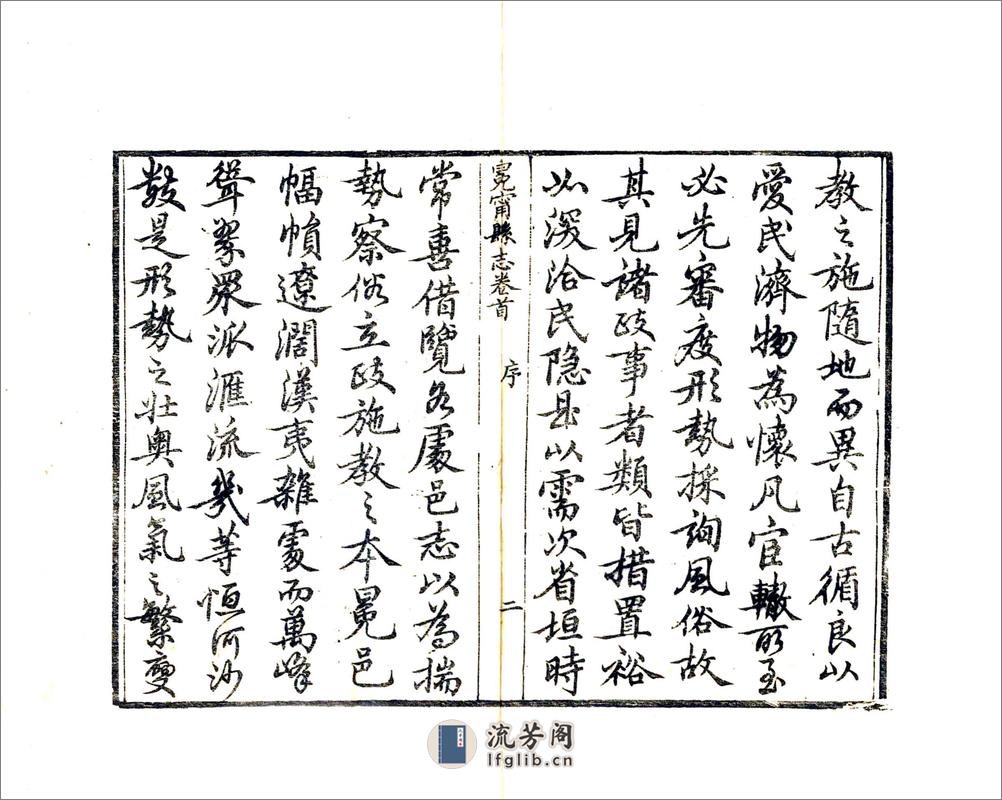 教之施隨地而異自古循良以
愛民濟物為懷凡官轍所至
必先審度形勢採詢風俗故
其見諸政事者類皆措置裕
如深洽民隱县以需次省垣時
冕甯縣志卷首 序 二
常喜借覽各處邑志以為揣
勢察俗立政施教之本冕邑
幅幀遼濶漢夷雜處而萬峰
聳翠眾派滙流幾等恒河沙
數是形勢之壯奧風氣之繁變
流芳阁
lfglib.cn